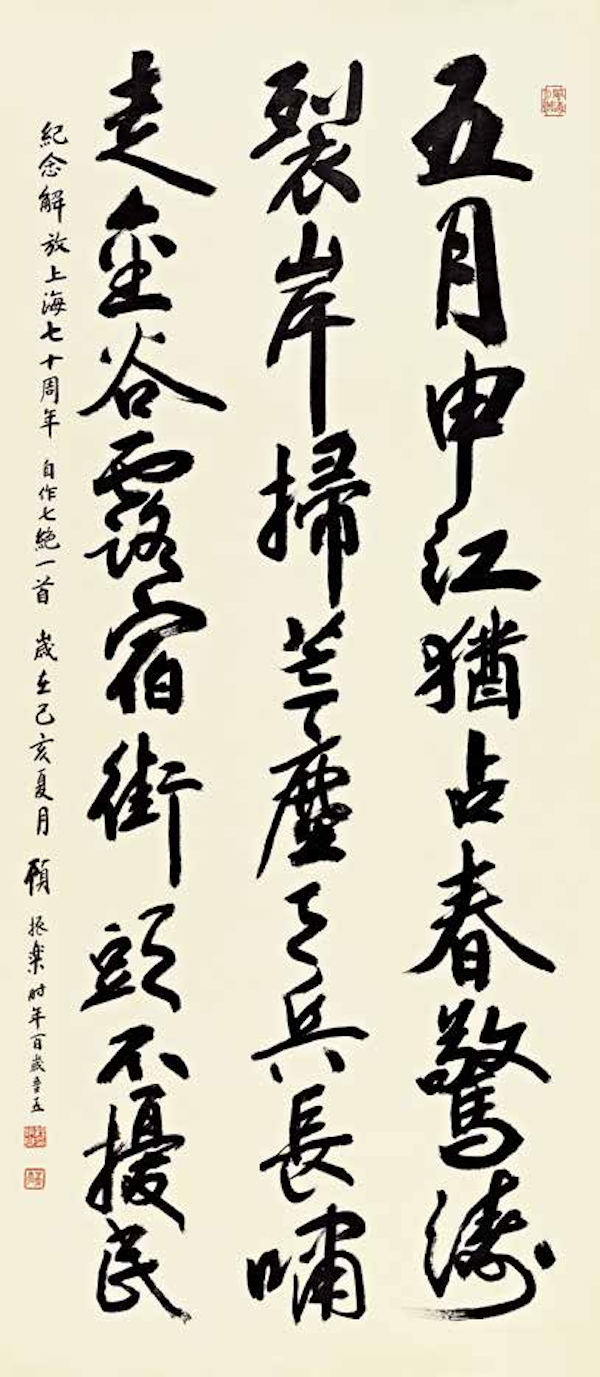 五月申江猶占春驚濤
裂岸掃塵天兵長嘯
走金谷露宿街頭不擾民
紀念解放上海七十周年 自作七絕一首 歲在己亥夏月 顧振樂时年百歲晋五